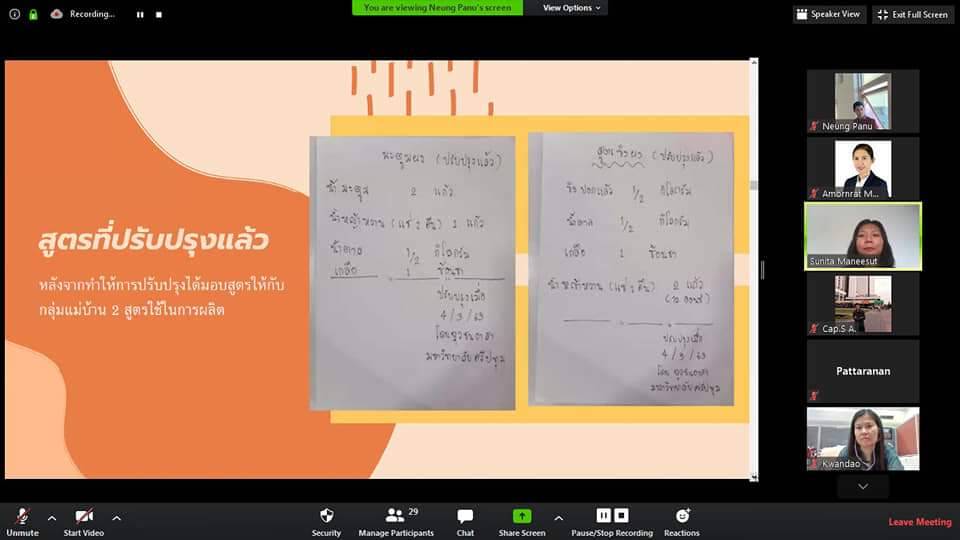 Recording...
You are viewing Neung Panu's screen
View Options
Speaker View
Exit Full Screen
สูตรที่ปรับปรุงแล้ว
หลังจากทำให้การปรับปรุงได้มอบสูตรให้กับ
กลุ่มแม่บ้าน 2 สูตรใช้ในการผลิต
มะตูมผง (ปรับปรุงแล้ว)
น้ำมะตูม 2 แก้ว
น้ำหญ้าหวาน (แช่ 1 คืน) 1 แก้ว
น้ำตาล 1/2 กิโลกรัม
เกลือ 1 ช้อนชา
ปรับปรุงเมื่อ
4 / 3 / 63
โดยยุวชนอาสา
มหาวิทยาลัยศรีปทุม
สูตรขิงผง (ปรับปรุงแล้ว)
ขิงปอกแล้ว 1/2 กิโลกรัม
น้ำตาล 1/2 กิโลกรัม
เกลือ 1 ช้อนชา
น้ำหญ้าหวาน (แช่ 1 คืน) 2 แก้ว
ปรับปรุงเมื่อ
4 / 3 / 63
โดย ยุวชนอาสา
มหาวิทยาลัยศรีปทุม
Neung Panu
Amornrat M...
Sunita Maneesut
Cap.S A.
Pattaranan
Kwandao
Unmute
Start Video
Security
Manage Participants
29
Chat
Share Screen
Pause/Stop Recording
Reactions
Leave Meeting